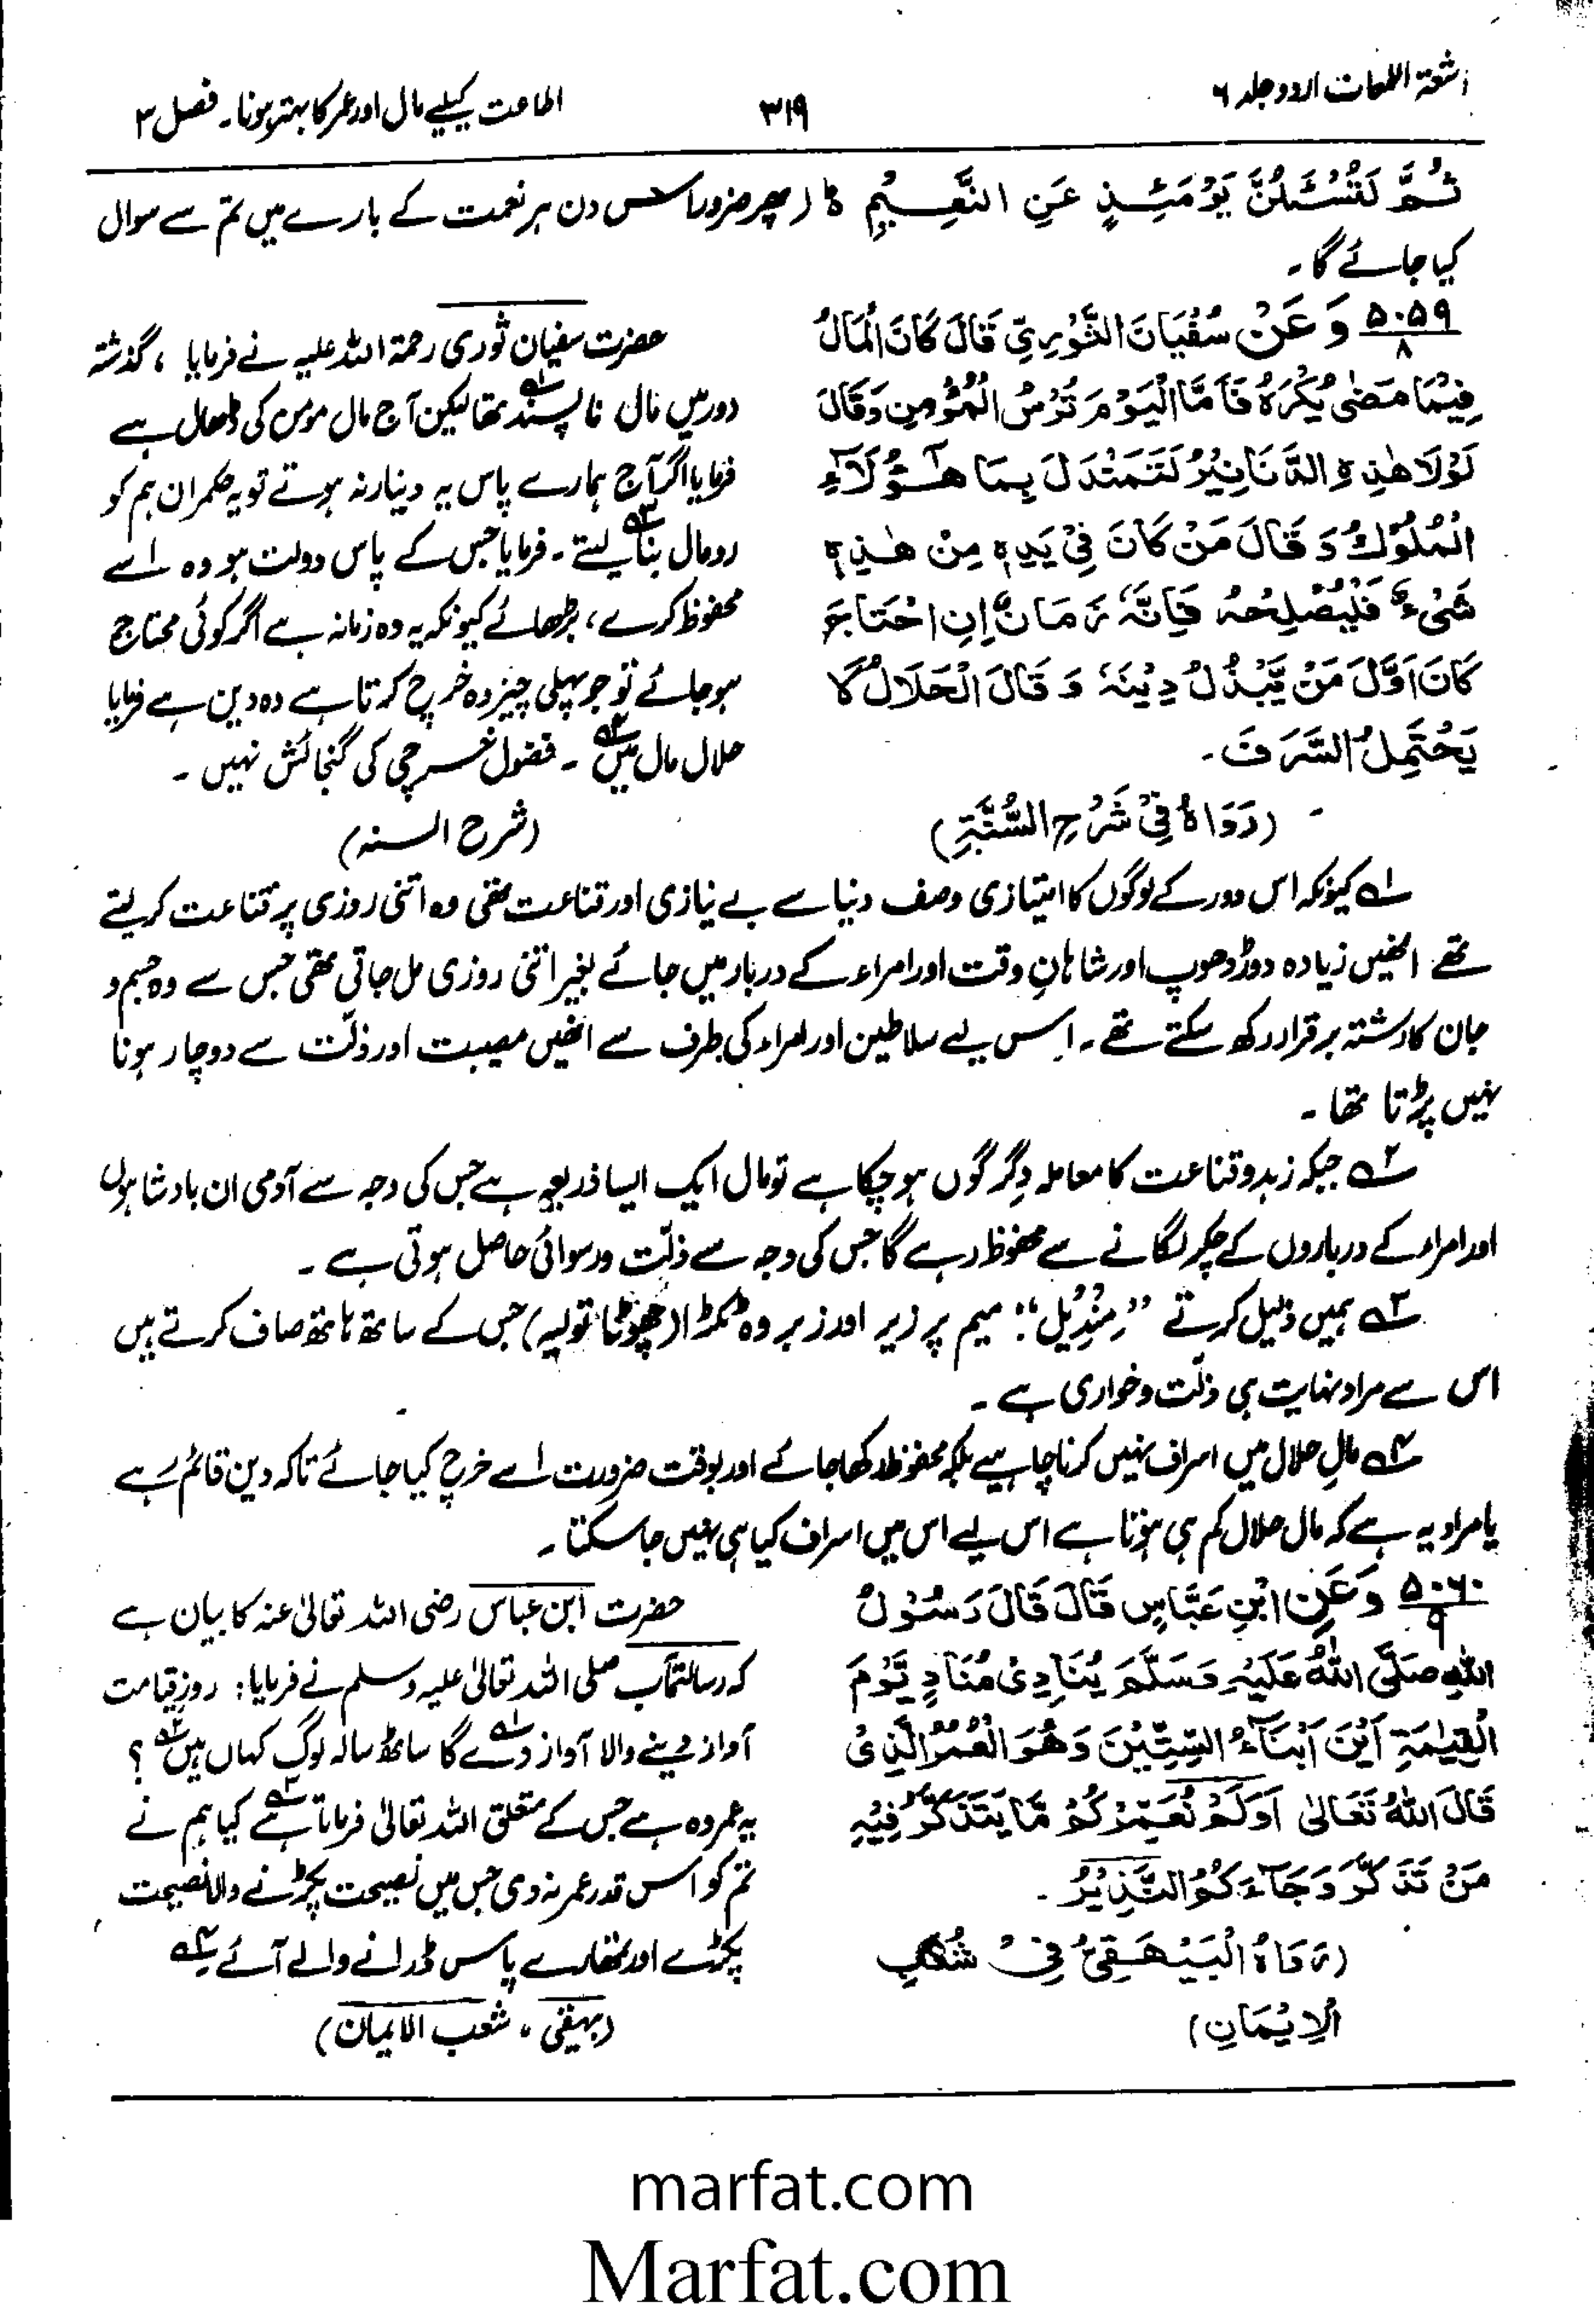 اشعۃ اللمعات اردو جلد ۶
۳۱۹
اطاعت کیلیے مال اور عمر کا بہتر ہونا۔ فصل ۳
ثُمَّ لَتُسْئَلُنَّ يَوْمَئِذٍ عَنِ النَّعِيْمِ ہ (پھر ضرور اس دن ہر نعمت کے بارے میں تم سے سوال
کیا جائے گا۔
۵۰۵۹/۸ وَعَنْ سُفْيَانَ الثَّوْرِيِّ قَالَ كَانَ الْمَالُ
فِيْمَا مَضٰى يُكْرَهُ فَاَمَّا الْيَوْمَ تُرْسُ الْمُؤْمِنِ وَقَالَ
لَوْلَا هٰذِهِ الدَّنَانِيْرُ لَتَمَنْدَلَ بِنَا هٰؤُلَاءِ
الْمُلُوْكُ وَقَالَ مَنْ كَانَ فِيْ يَدِهٖ مِنْ هٰذِهٖ
شَيْءٌ فَلْيُصْلِحْهُ فَاِنَّهٗ زَمَانٌ اِنِ احْتَاجَ
كَانَ اَوَّلَ مَنْ يَّبْذُلُ دِيْنَهٗ وَقَالَ الْحَلَالُ لَا
يَحْتَمِلُ السَّرَفَ۔
(رَوَاهُ فِيْ شَرْحِ السُّنَّةِ)
حضرت سفیان ثوری رحمۃ اللہ علیہ نے فرمایا ، گذشتہ
دور میں مال ناپسند ۱؎ تھا لیکن آج مال مومن کی ڈھال ہے
فرمایا اگر آج ہمارے پاس یہ دینار نہ ہوتے تو یہ حکمران ہم کو
رومال بنا ۳؎ لیتے ۔ فرمایا جس کے پاس دولت ہو وہ اسے
محفوظ کرے ، بڑھائے کیونکہ یہ وہ زمانہ ہے اگر کوئی محتاج
ہو جائے تو جو پہلی چیز وہ خرچ کرتا ہے وہ دین ہے فرمایا
حلال مال میں ۴؎ ۔ فضول خرچی کی گنجائش نہیں ۔
(شرح السنہ)
۱؎ کیونکہ اس دور کے لوگوں کا امتیازی وصف دنیا سے بے نیازی اور قناعت تھی وہ اتنی روزی پر قناعت کر لیتے
تھے انھیں زیادہ دوڑ دھوپ اور شاہانِ وقت اور امراء کے دربار میں جائے بغیر اتنی روزی مل جاتی تھی جس سے وہ جسم و
جان کا رشتہ برقرار رکھ سکتے تھے ۔ اس لیے سلاطین اور امراء کی طرف سے انھیں مصیبت اور ذلّت سے دوچار ہونا
نہیں پڑتا تھا ۔
۲؎ جبکہ زہد و قناعت کا معاملہ دِگرگوں ہو چکا ہے تو مال ایک ایسا ذریعہ ہے جس کی وجہ سے آدمی ان بادشاہوں
اور امراء کے درباروں کے چکر لگانے سے محفوظ رہے گا جس کی وجہ سے ذلّت و رسوائی حاصل ہوتی ہے ۔
۳؎ ہمیں ذلیل کرتے ”مِنْدِیْل“: میم پر زیر اور زبر وہ ٹکڑا (چھوٹا تولیہ) جس کے ساتھ ہاتھ صاف کرتے ہیں
اس سے مراد نہایت ہی ذلّت و خواری ہے ۔
۴؎ مالِ حلال میں اسراف نہیں کرنا چاہیے بلکہ محفوظ رکھا جائے اور بوقت ضرورت اسے خرچ کیا جائے تاکہ دین قائم رہے
یا مراد یہ ہے کہ مال حلال کم ہی ہوتا ہے اس لیے اس میں اسراف کیا ہی نہیں جا سکتا ۔
۵۰۶۰/۹ وَعَنِ ابْنِ عَبَّاسٍ قَالَ قَالَ رَسُوْلُ
اللّٰهِ صَلَّى اللّٰهُ عَلَيْهِ وَسَلَّمَ يُنَادِيْ مُنَادٍ يَّوْمَ
الْقِيٰمَةِ اَيْنَ اَبْنَاءُ السِّتِّيْنَ وَهُوَ الْعُمُرُ الَّذِيْ
قَالَ اللّٰهُ تَعَالٰى اَوَلَمْ نُعَمِّرْكُمْ مَّا يَتَذَكَّرُ فِيْهِ
مَنْ تَذَكَّرَ وَجَآءَكُمُ النَّذِيْرُ ۔
(رَوَاهُ الْبَيْهَقِيُّ فِيْ شُعَبِ
الْاِيْمَانِ)
حضرت ابن عباس رضی اللہ تعالیٰ عنہ کا بیان ہے
کہ رسالتمآب صلی اللہ تعالیٰ علیہ وسلم نے فرمایا: روزِ قیامت
آواز دینے والا آواز دے ۱؎ گا ساٹھ سالہ لوگ کہاں ہیں ۲؎ ؟
یہ عمر وہ ہے جس کے متعلق اللہ تعالیٰ فرماتا ہے ۳؎ کیا ہم نے
تم کو اس قدر عمر نہ دی جس میں نصیحت پکڑنے والا نصیحت
پکڑے اور تمھارے پاس ڈرانے والے آئے ۴؎
(بیہقی ، شعب الایمان)
marfat.com
Marfat.com